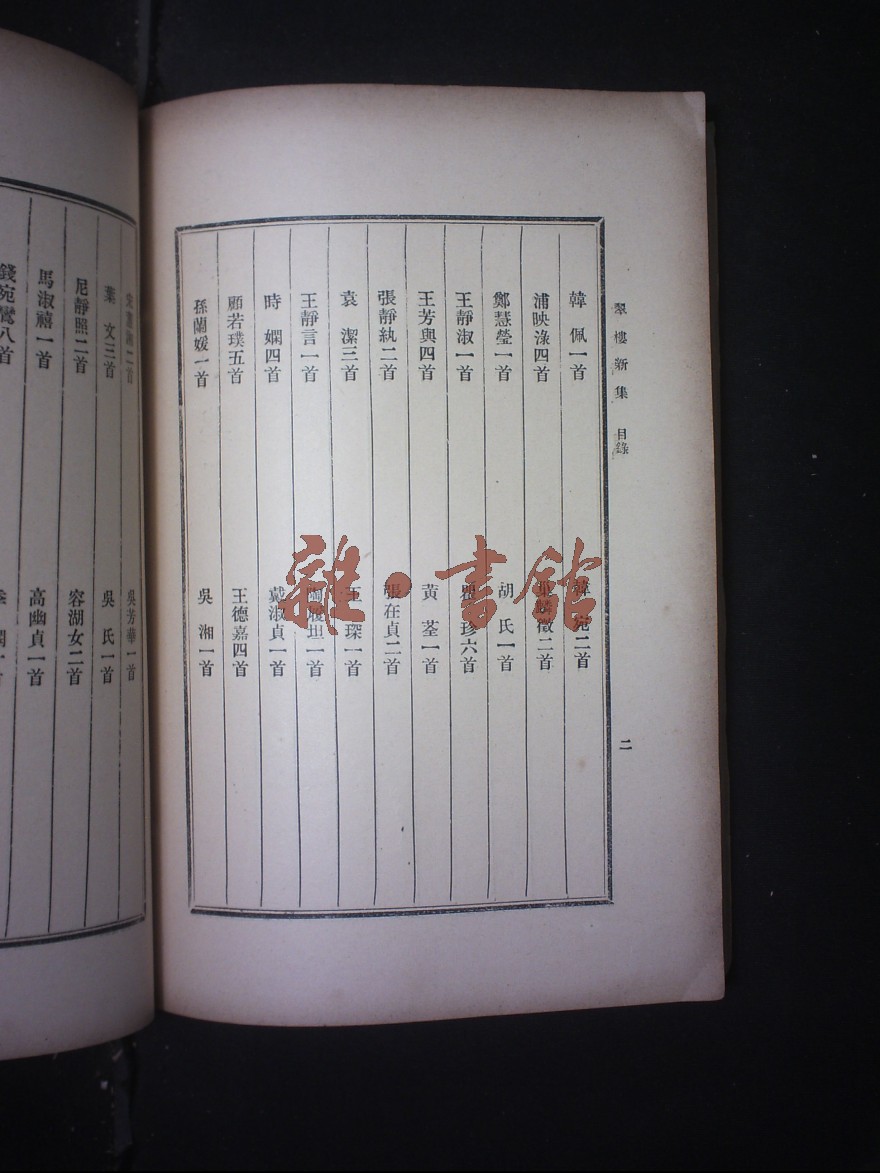 翠樓新集 目錄
二
韓 佩一首 韓 宛二首
浦映淥四首 葉麟徵二首
鄭慧瑩一首 胡 氏一首
王靜淑一首 珍六首
王芳與四首 黃 荃一首
張靜紈二首 張在貞二首
袁 潔三首 王 琛一首
王靜言一首 陶履坦一首
時 嫻四首 戴淑貞一首
顧若璞五首 王德嘉四首
孫蘭媛一首 吳 湘一首
二首 吳芳華一首
葉 文三首 吳 氏一首
尼靜照二首 容湖女二首
馬淑禧一首 高幽貞一首
錢宛鸞八首
雜·書館